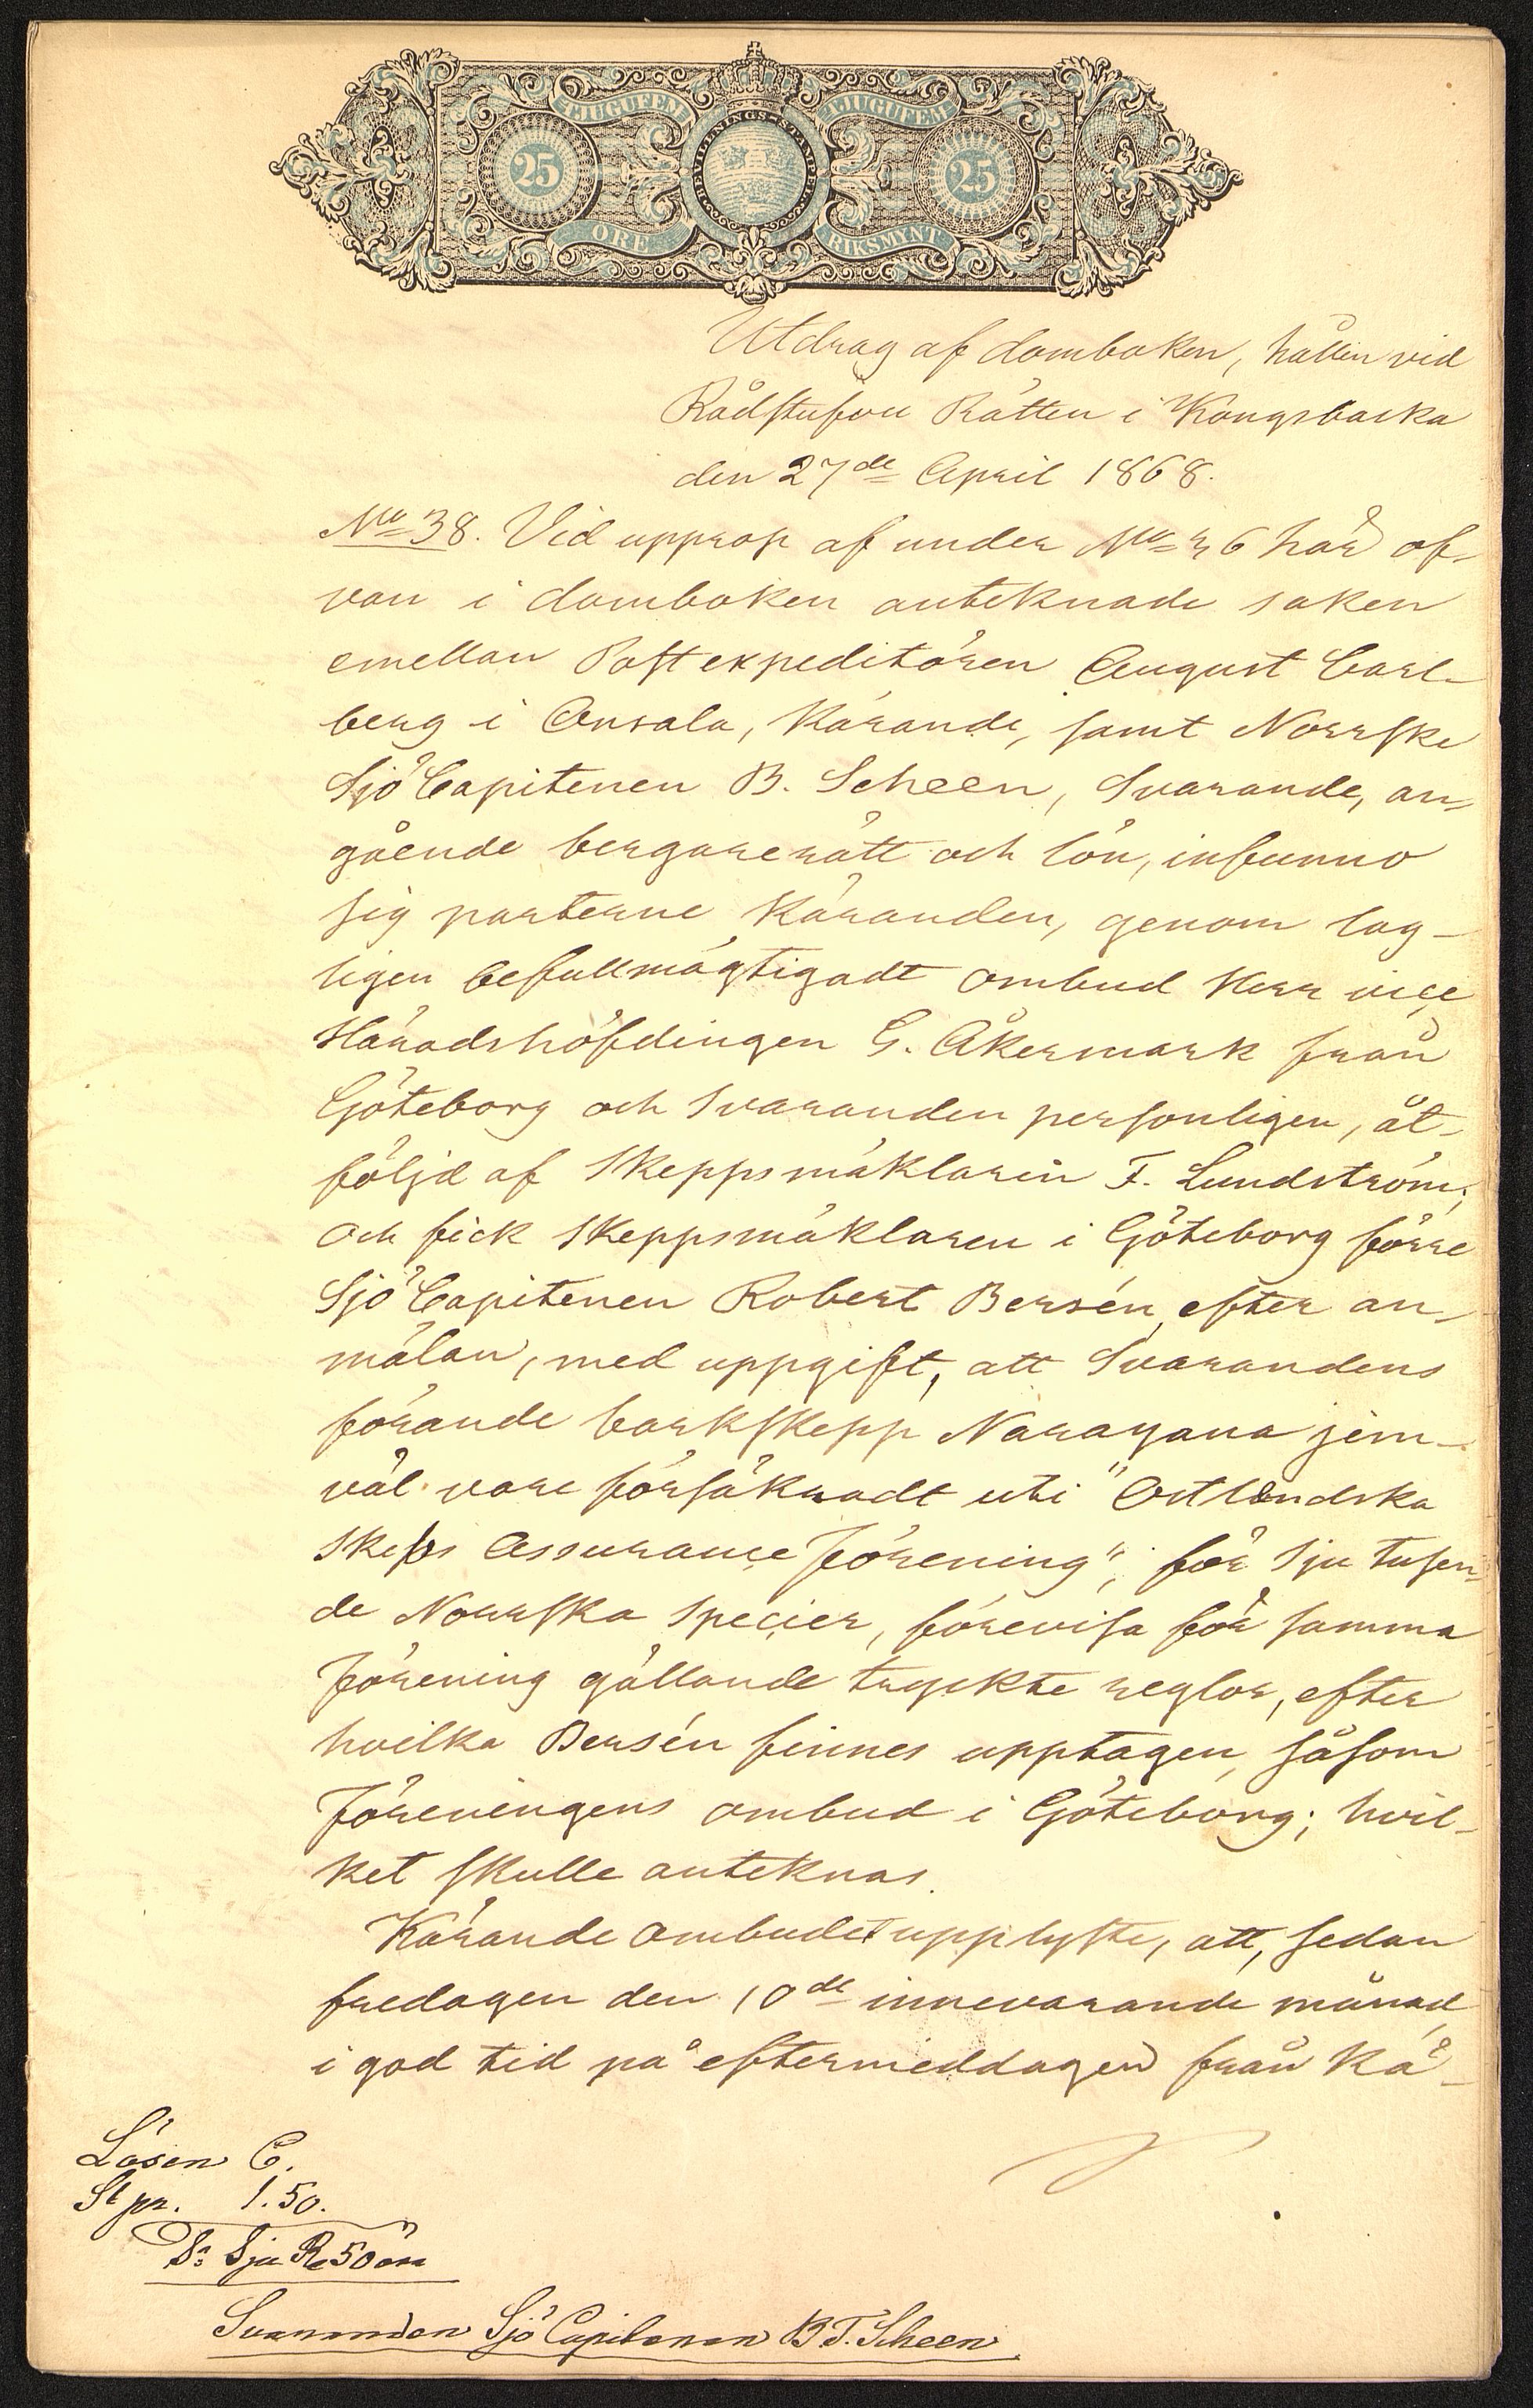 TJUGUFEM TJUGUFEM
BEVILLNINGS-STÄMPEL
25 25
ÖRE RIKSMYNT
Utdrag af domboken, hållen vid
Rådstufvu Rätten i Kongsbacka
den 27de April 1868.
No 38. Vid upprop af under No 26 här of-
van i domboken antecknade saken
emellan Postexpeditören August Carl-
berg i Onsala, Kärande, samt Norrske
SjöCapitenen B. Scheen, Svarande, an-
gående bergarerätt och lön, infunno
sig parterne Käranden, genom lag-
ligen befullmägtigadt ombud Herr vice
Häradshöfdingen G. Åkermark från
Göteborg och Svaranden personligen, åt-
följd af Skeppsmäklaren F. Lundström;
och fick Skeppsmäklaren i Göteborg förre
SjöCapitenen Robert Bersén, efter an-
mälan, med uppgift, att Svarandens
förande barkskepp Narayana jem-
väl vore försäkradt uti "Ostlandska
Skeps Assurance Förening", för Sju tusen-
de Norrska Specier, förevisa för samma
Förening gällande tryckte reglor, efter
hvilka Bersén finnes upptagen, såsom
Föreningens ombud i Göteborg; hvil-
ket skulle antecknas.
Kärande ombudet upplyste, att, sedan
fredagen den 10de innevarande månad
i god tid på eftermiddagen från Kä-
Lösen 6.
St pr. 1.50.
Sa Sju Rd 50 öre
Svaranden SjöCapitenen B T. Scheen